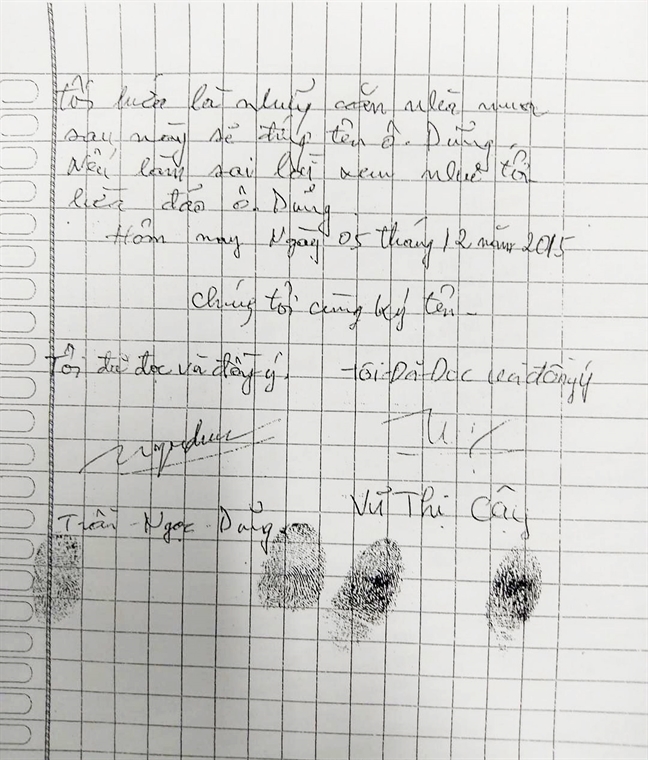 Tôi hứa là những căn nhà mua
sau này sẽ đứng tên ô. Dũng.
Nếu làm sai lời xem như tôi
lừa đảo ô. Dũng
Hôm nay Ngày 05 tháng 12 năm 2015
chúng tôi cùng ký tên -
Tôi đã đọc và đồng ý. - Tôi Đã Đọc và đồng ý
Trần - Ngọc - Dũng. Vũ Thị Cậy